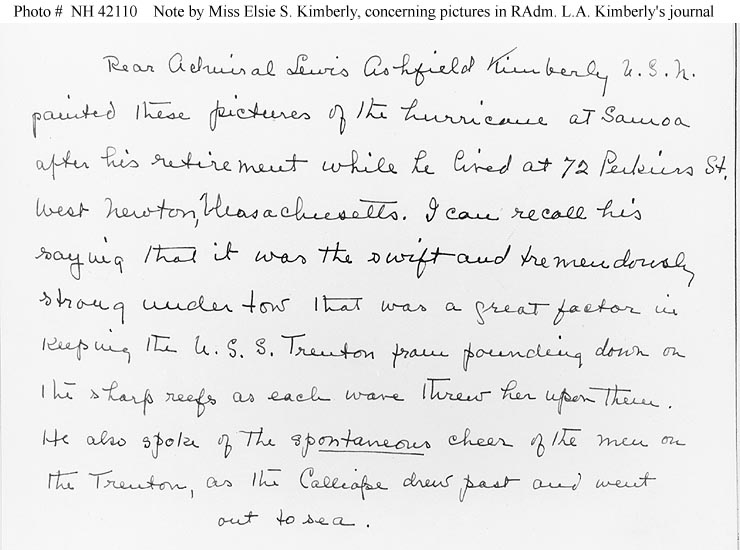 Photo # NH 42110 Note by Miss Elsie S. Kimberly, concerning pictures in RAdm. L.A. Kimberly's journal
Rear Admiral Lewis Ashfield Kimberly U.S.N.
painted these pictures of the hurricane at Samoa
after his retirement while he lived at 72 Perkins St.
West Newton, Massachusetts. I can recall his
saying that it was the swift and tremendously
strong under tow that was a great factor in
keeping the U.S.S. Trenton from pounding down on
the sharp reefs as each wave threw her upon them.
He also spoke of the spontaneous cheer of the men on
the Trenton, as the Calliope drew past and went
out to sea.